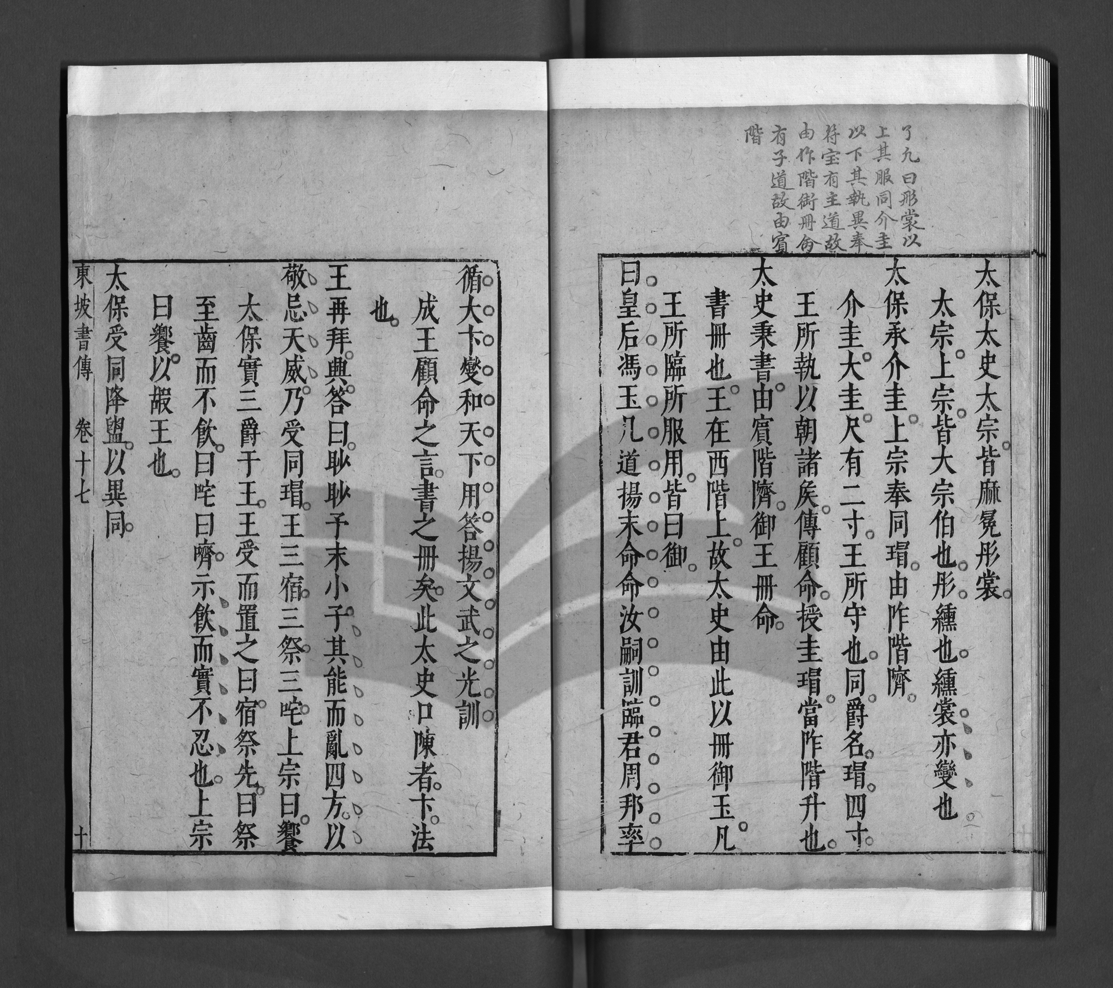 了凡曰彤裳以
上其服同介圭
以下其執異奉
符宝有主道故
由阼階御冊命
有子道故由賓
階
太保太史太宗皆麻冕彤裳
太宗上宗皆大宗伯也彤纁也纁裳亦變也
太保承介圭上宗奉同瑁由阼階隮
介圭大圭尺有二寸王所守也同爵名瑁四寸
王所執以朝諸矦傳顧命授圭瑁當阼階升也
太史秉書由賓階隮御王冊命
書冊也王在西階上故太史由此以冊御王凡
王所臨所服用皆曰御
曰皇后馮玉几道揚末命命汝嗣訓臨君周邦率
循大卞燮和天下用答揚文武之光訓
成王顧命之言書之冊矣此太史口陳者卞法
也
王再拜興答曰眇眇予末小子其能而亂四方以
敬忌天威乃受同瑁王三宿三祭三咤上宗曰饗
太保實三爵于王王受而置之曰宿祭先曰祭
至齒而不飲曰咤曰嚌示飲而實不忍也上宗
曰饗以嘏王也
太保受同降盥以異同
東坡書傳 卷十七 十